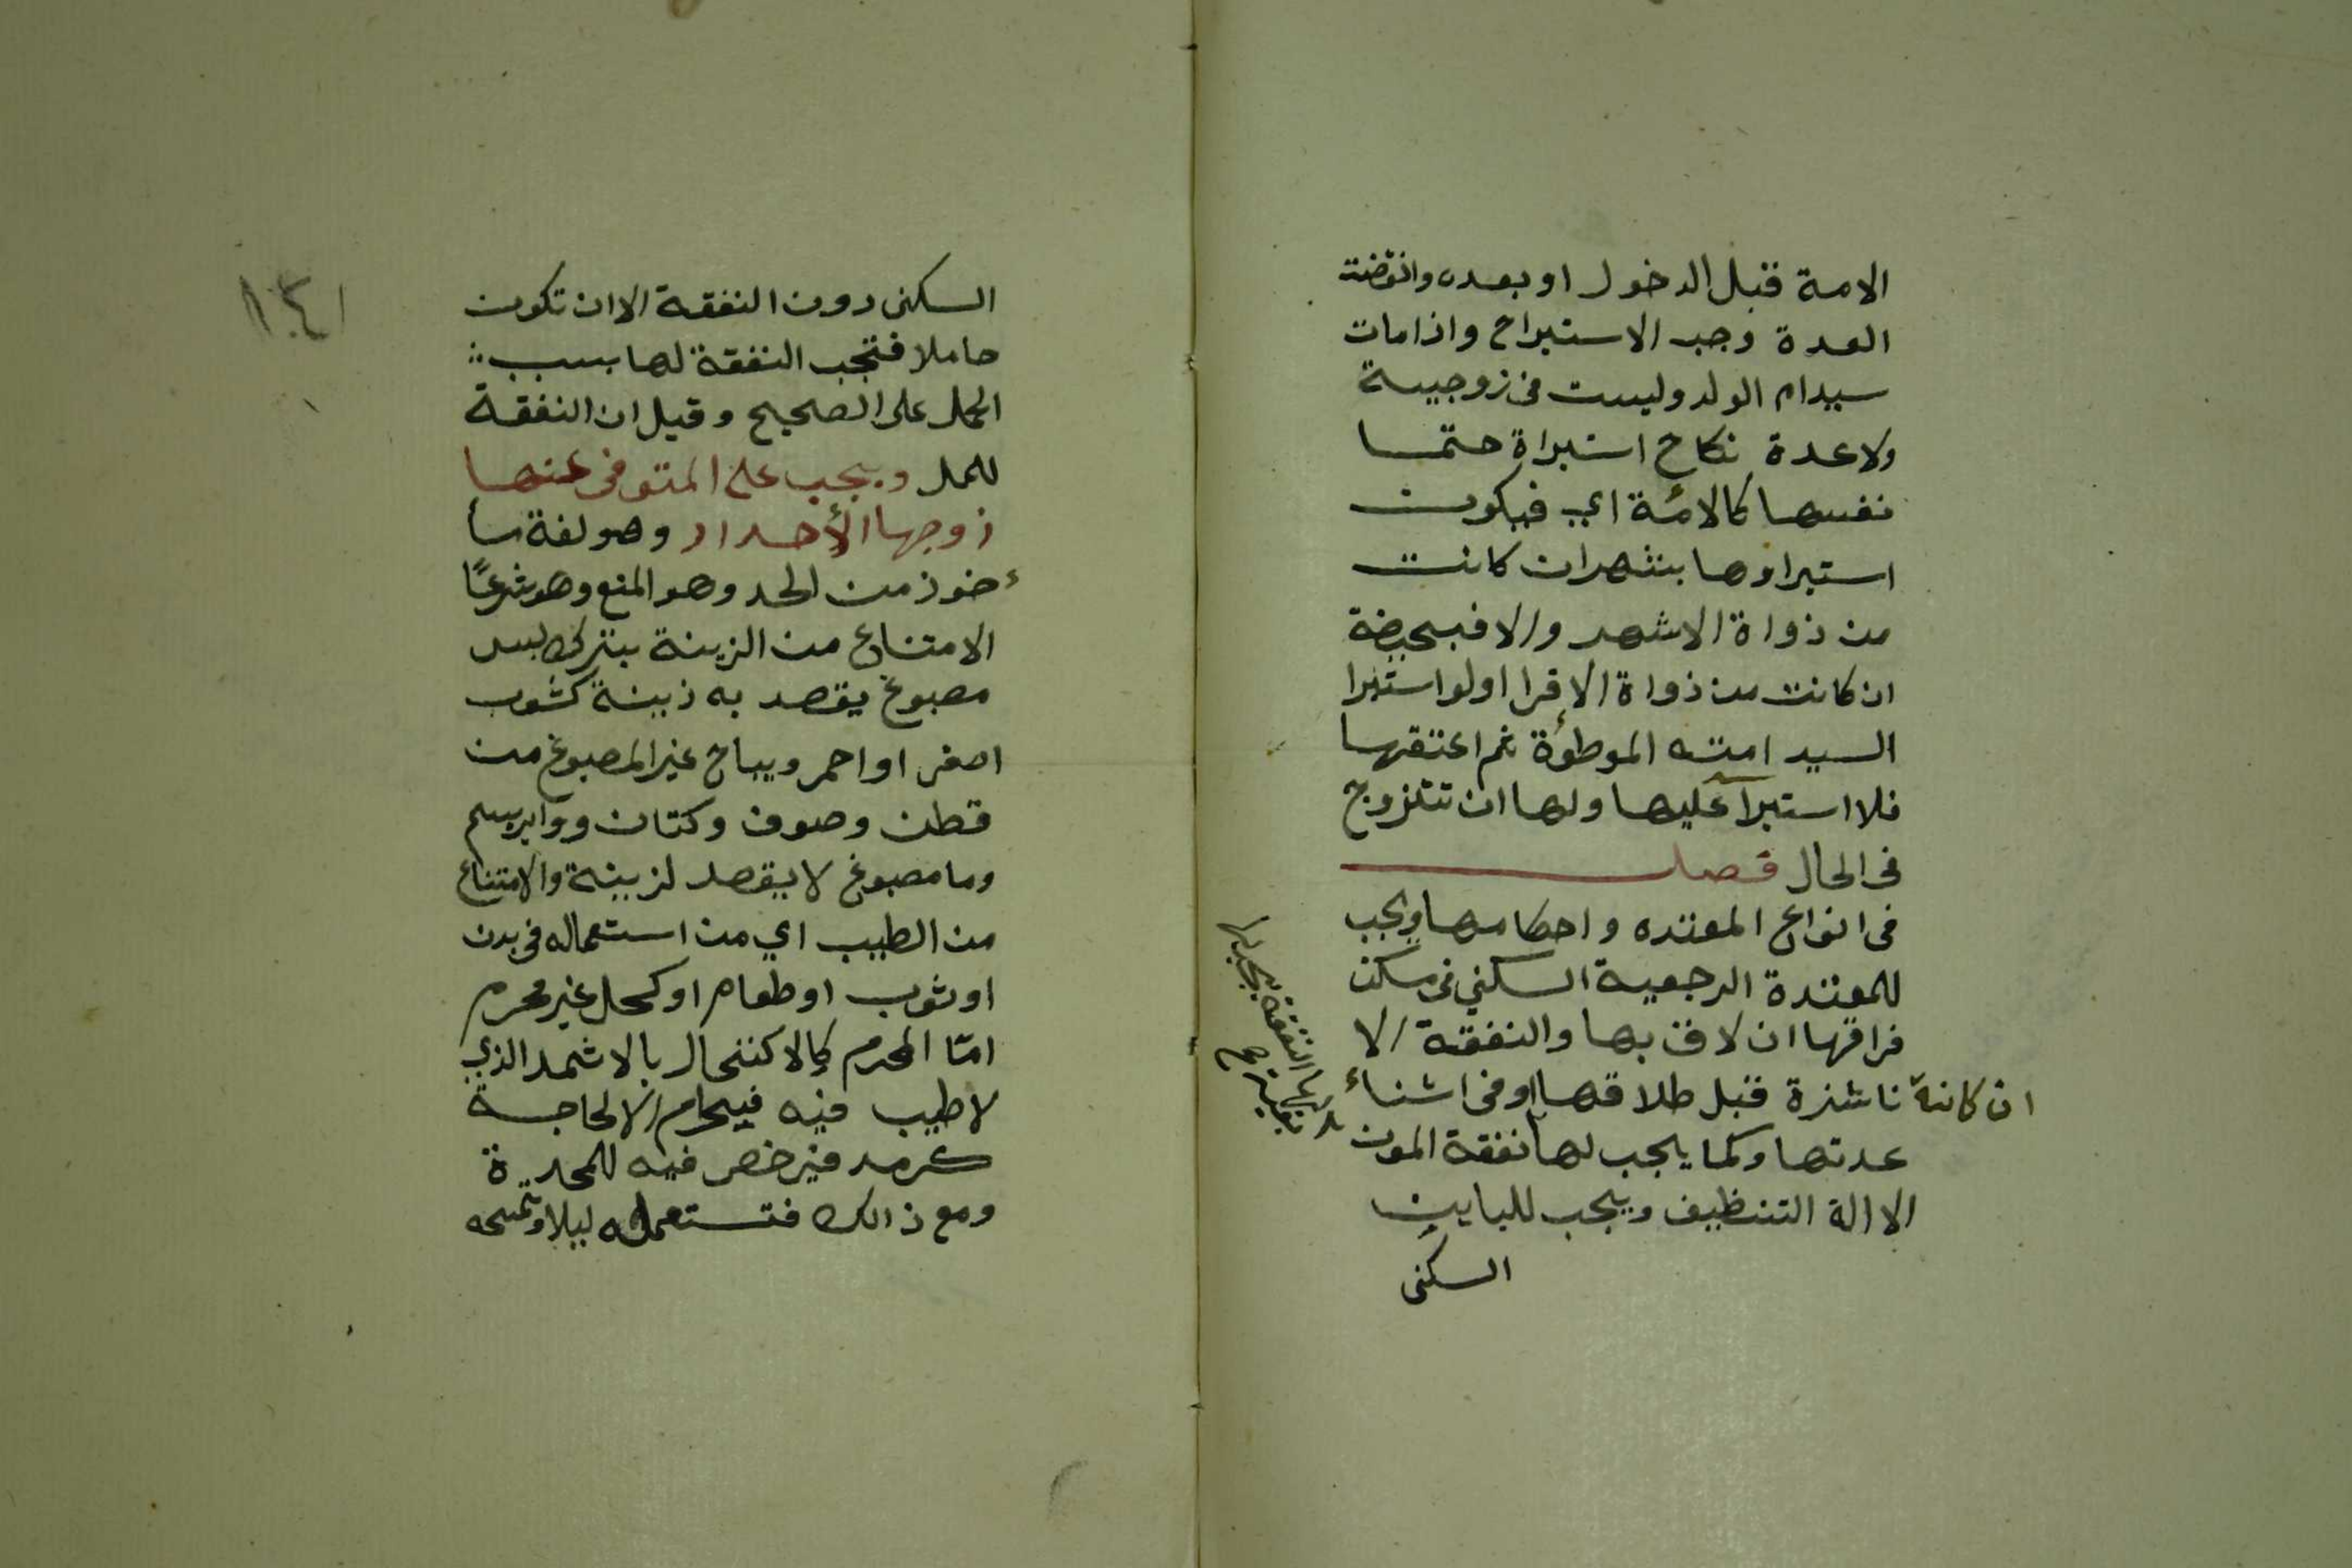 الامة قبل الدخول او بعده وانقضت
العدة وجب الاستبراح واذا مات
سيدام الولد وليست في زوجيسة
ولا عدة نكاح استبراة حتما
نفسها كالامة اي فيكون
استبراوها بشهر ان كانت
من ذواة الاشهر والا فبحيضة
ان كانت من ذواة الاقرا اولو استبرا
السيد امته الموطوئة ثم اعتقها
فلا استبرآ عليها ولها ان تتزوج
في الحال فصل
في انواع المعتده واحكامها ويجب
للمعتدة الرجعية السكني في مسكن
فراقها ان لاق بها والنفقة الا
ان كانة ناشزة قبل طلاقها او في اشناء
عدتها وكما يجب لها نفقة المون
الا الة التنظيف ويجب للباين
السكنى
النفقة يجب لها
١٤١
السكنى دون النفقة الا ان تكون
حاملا فتجب النفقة لها بسبب
الحمل على الصحيح وقيل ان النفقة
للحمل ويجب على المتوفى عنها
زوجها الأحداد وهو لغة ما
ءخوذ من الحد وهو المنع وهو شرعًا
الامتناع من الزينة بترك لبس
مصبوغ يقصد به زينة كثوب
اصفر او احمر ويباح غير المصبوغ من
قطن وصوف وكتان ووابريسم
وما مصبوغ لا يقصد لزينة والامتناع
من الطيب اي من استعماله في بدن
او ثوب او طعام او كحل غير محرم
امّا المحرم كالاكتحال بالاثمد الذي
لا طيب فيه فيحرام الا لحاجة
كرمد فيرخص فيه للمحدة
ومع ذالك فتستعمله ليلا وتمسحه